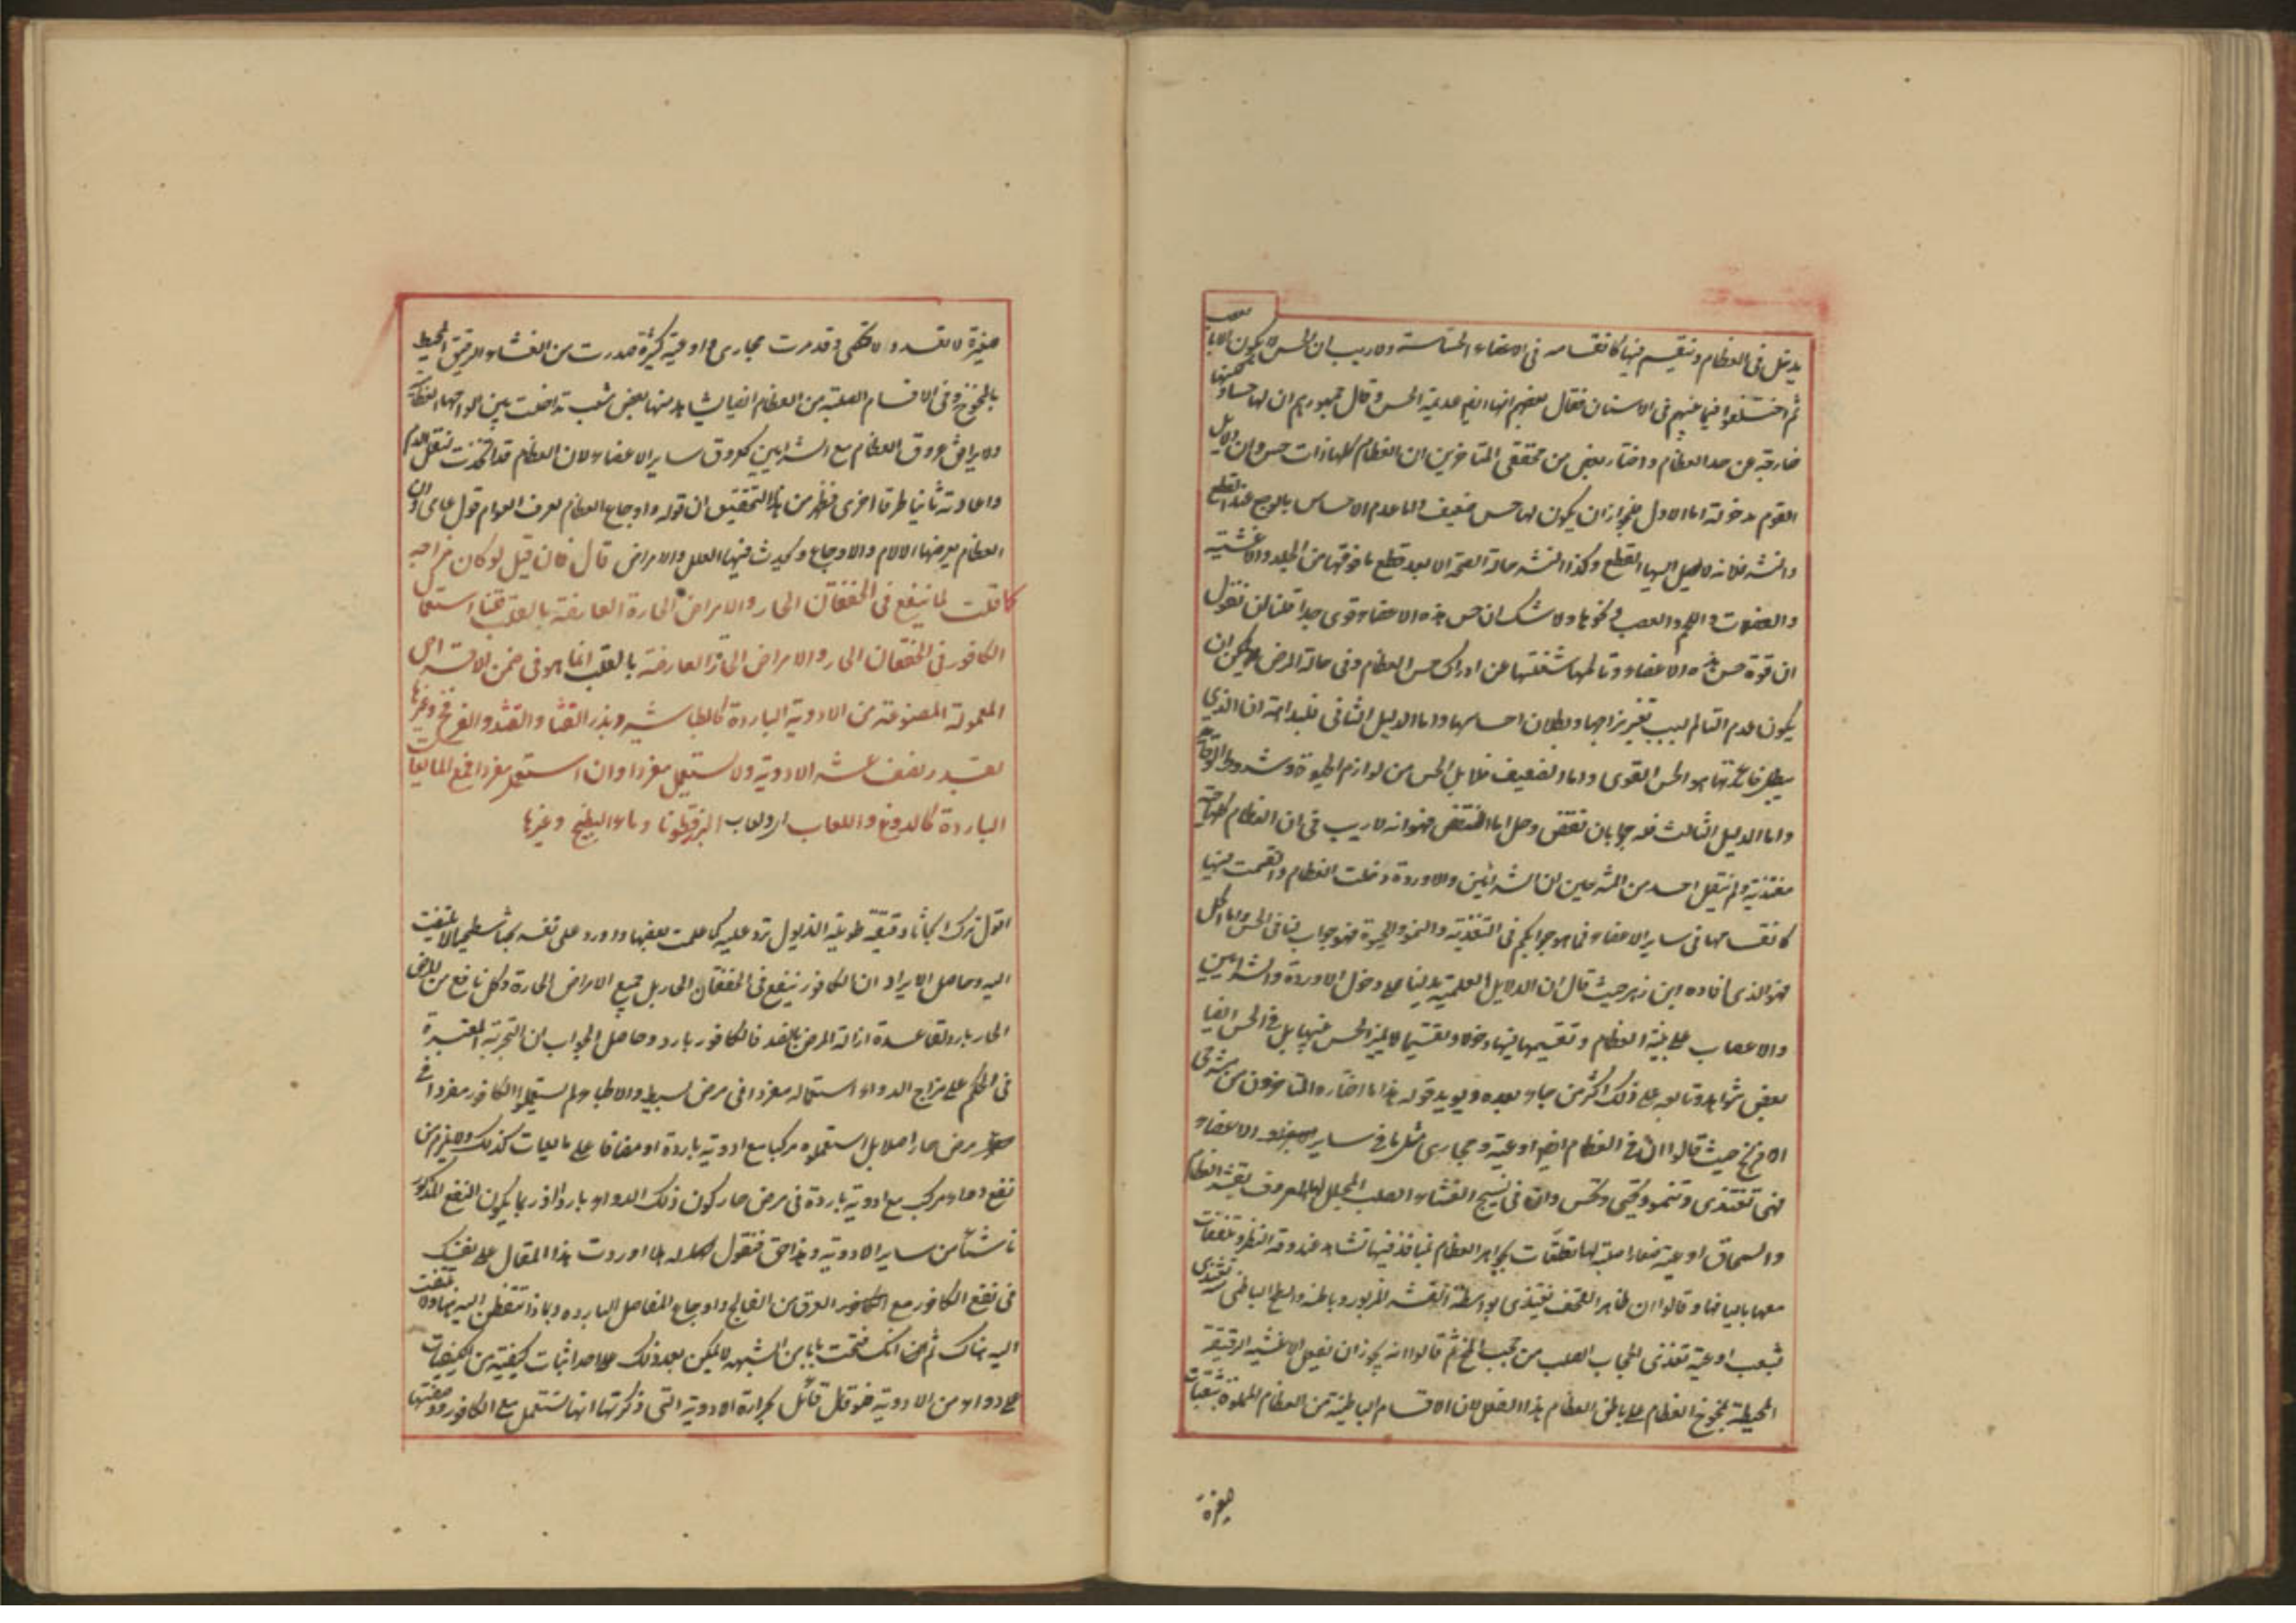 يدخل فى العظام وتنقسم فيها كانقسامه فى الاعضاء الحساسة ولاريب ان الحس لا يكون الا بالعصب
ثم اختلفوا فيما بينهم فى الاسنان فقال بعضهم انها ايضا عديمة الحس وقال جمهورهم ان لها حسا
خارجة عن حد العظام واختار بعض من محققى المتاخرين ان العظام كلها ذات حس وان دلايل
القوم مدخولة اما الاول فلجواز ان يكون لها حس ضعيف واما عدم الاحساس بالوجع عند القطع
والنشر فلانه لا يصل اليها القطع وكذا النشر حالة الصحة الا بعد قطع ما فوقها من الجلد والاغشية
والعضلات واللحم والعصب ونحوها ولا شك ان حس هذه الاعضاء قوى جدا فلنا ان نقول
ان قوة حس هذه الاعضاء وتالمها شغلتها عن ادراك حس العظام وفى حالة المرض يمكن ان
يكون عدم التالم لسبب تغير مزاجها وبطلان احساسها واما الدليل الثانى فلبداهة ان الذى
يبطل هو الحس القوى واما الضعيف فلا بل الحس من لوازم الحيوة وشروط
واما الدليل الثالث فله جوابان نقض وحل اما النقض فهو انه لاريب فى ان العظام كلها حية
مغتذية ولم يقل احد من المشرحين ان الشرائين والاوردة دخلت العظام وانقسمت فيها
كانقسامها فى ساير الاعضاء فما هو جوابكم فى التغذية والنمو والحيوة فهو جوابنا فى الحس واما الحل
فهو الذى افاده ابن زهر حيث قال ان الدلايل العلمية تدلنا على دخول الاوردة والشرايين
والاعصاب على بنية العظام وتقسيمها فيها دخولا وتقسيما لا يميز الحس عنها بل فى الحس ايضا
بعض شواهد وتابعه على ذلك اكثر من جاء بعده ويويد قوله هذا ما اختاره المتاخرون من مشرحى
الافرنج حيث قالوا ان فى العظام ايضا اوعية ومجارى مثل ما فى ساير الاعضاء
فهى تغتذى وتنمو وتحيى وتحس وان فى نسيج الغشاء الصلب المجلل لها المعروف بقشر العظام
والسمحاق اوعية صغارا صلبة لها تعلقات بجواهر العظام منافذ فيها تشاهد عند دقة النظر
معها بالياف وقالوا ان ظاهر القحف تغتذى بواسطة القشر المزبور وباطنه والسطح الباطنى منه تغتذى
بشعب اوعية تغذى الحجاب الصلب من حجب المخ ثم قالوا انه يجوز ان تفعل الاغشية الرقيقة
المحيطة بمخوخ العظام على باطن العظام هذا الفعل لان الاقسام الباطنية من العظام المملوة بثقبات
صغيرة
صغيرة لا تعد ولا تحصى وقد مرت مجارى واوعية كثيرة صدرت من الغشاء الرقيق المحيط
بالمخوخ وفى الاقسام الصلبة من العظام ايضا يشاهد منها بعض شعب تداخلت بين الواحها العظامية
ولا يرافق عروق العظام مع الشرايين كعروق ساير الاعضاء لان العظام قد اتخذت لنقل الدم
واعادته ثانيا طرقا اخرى فظهر من هذا التحقيق ان قوله واوجاع العظام بعرف العوام قول عامى وان
العظام يعرضها الالام والاوجاع وتحدث فيها العلل والامراض قال فان قيل لو كان مزاجه
كما قلت لما ينفع فى الخفقان الحار والامراض الحارة العارضة بالقلب قلنا استعمال
الكافور فى الخفقان الحار والامراض الحارة العارضة بالقلب انما هو فى ضمن الاقراص
المعمولة المصنوعة من الادوية الباردة كالطباشير وبذر القثا والقثد والفرفخ وغيرها
بقدر نصف عشر الادوية ولا يستعمل مفردا وان استعمل مفردا فمع المايعات
الباردة كالدوغ واللعاب او لعاب البزرقطونا وماء البطيخ وغيرها
اقول ترك ابحاثا دقيقة طويلة الذيول ترد عليه كما علمت بعضها واورد على نفسه بحثا سطحيا لا يلتفت
اليه وحاصل الايراد ان الكافور ينفع فى الخفقان الحار بل جميع الامراض الحارة وكل نافع من المرض
الحار بارد لقاعدة ازالة المرض بالضد فالكافور بارد وحاصل الجواب ان التجربة المعتبرة
فى الحكم على مزاج الدواء استعماله مفردا فى مرض بسيط والاطباء لم يستعملوا الكافور مفردا فى
مرض حار اصلا بل استعملوه مركبا مع ادوية باردة او مضافا على مايعات كذلك ولا يلزم من
نفع دواء مركب مع ادوية باردة فى مرض حار كون ذلك الدواء باردا اذ ربما يكون النفع المذكور
ناشئا من ساير الادوية وهذا حق فنقول له لما اوردت هذا المقال على نفسك
فى نفع الكافور مع العرق من الفالج واوجاع المفاصل الباردة ولماذا تتفطن اليه ههنا ولا تلتفت
اليه هناك ثم انك فتحت بابا من الشبهة لا يمكن بعد ذلك على احد اثبات كيفية من الكيفيات
على دواء من الادوية فلو قال قائل بحرارة الادوية التى ذكرتها انها تستعمل مع الكافور